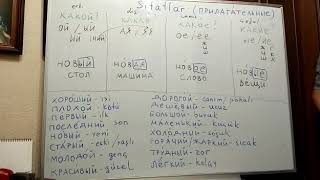 Sıfatlar (ПРИЛАГАТЕЛЬНЫЕ)
КАКОЙ? КАКАЯ КАКОЕ? КАКИЕ
ый / ий ая, яя ое, ее ые, ие
НОВЫЙ НОВАЯ НОВОЕ НОВЫЕ
СТОЛ МАШИНА СЛОВО ВЕЩИ
ХОРОШИЙ - iyi ДОРОГОЙ - canım / pahalı
ПЛОХОЙ - kötü ДЕШЁВЫЙ - ucuz
ПЕРВЫЙ - ilk БОЛЬШОЙ - büyük
ПОСЛЕДНИЙ - son МАЛЕНЬКИЙ - küçük
НОВЫЙ - yeni ХОЛОДНЫЙ - soğuk
СТАРЫЙ - eski / yaşlı ГОРЯЧИЙ / ЖАРКИЙ - sıcak
МОЛОДОЙ - genç ТРУДНЫЙ - zor
КРАСИВЫЙ - güzel ЛЁГКИЙ - kolay